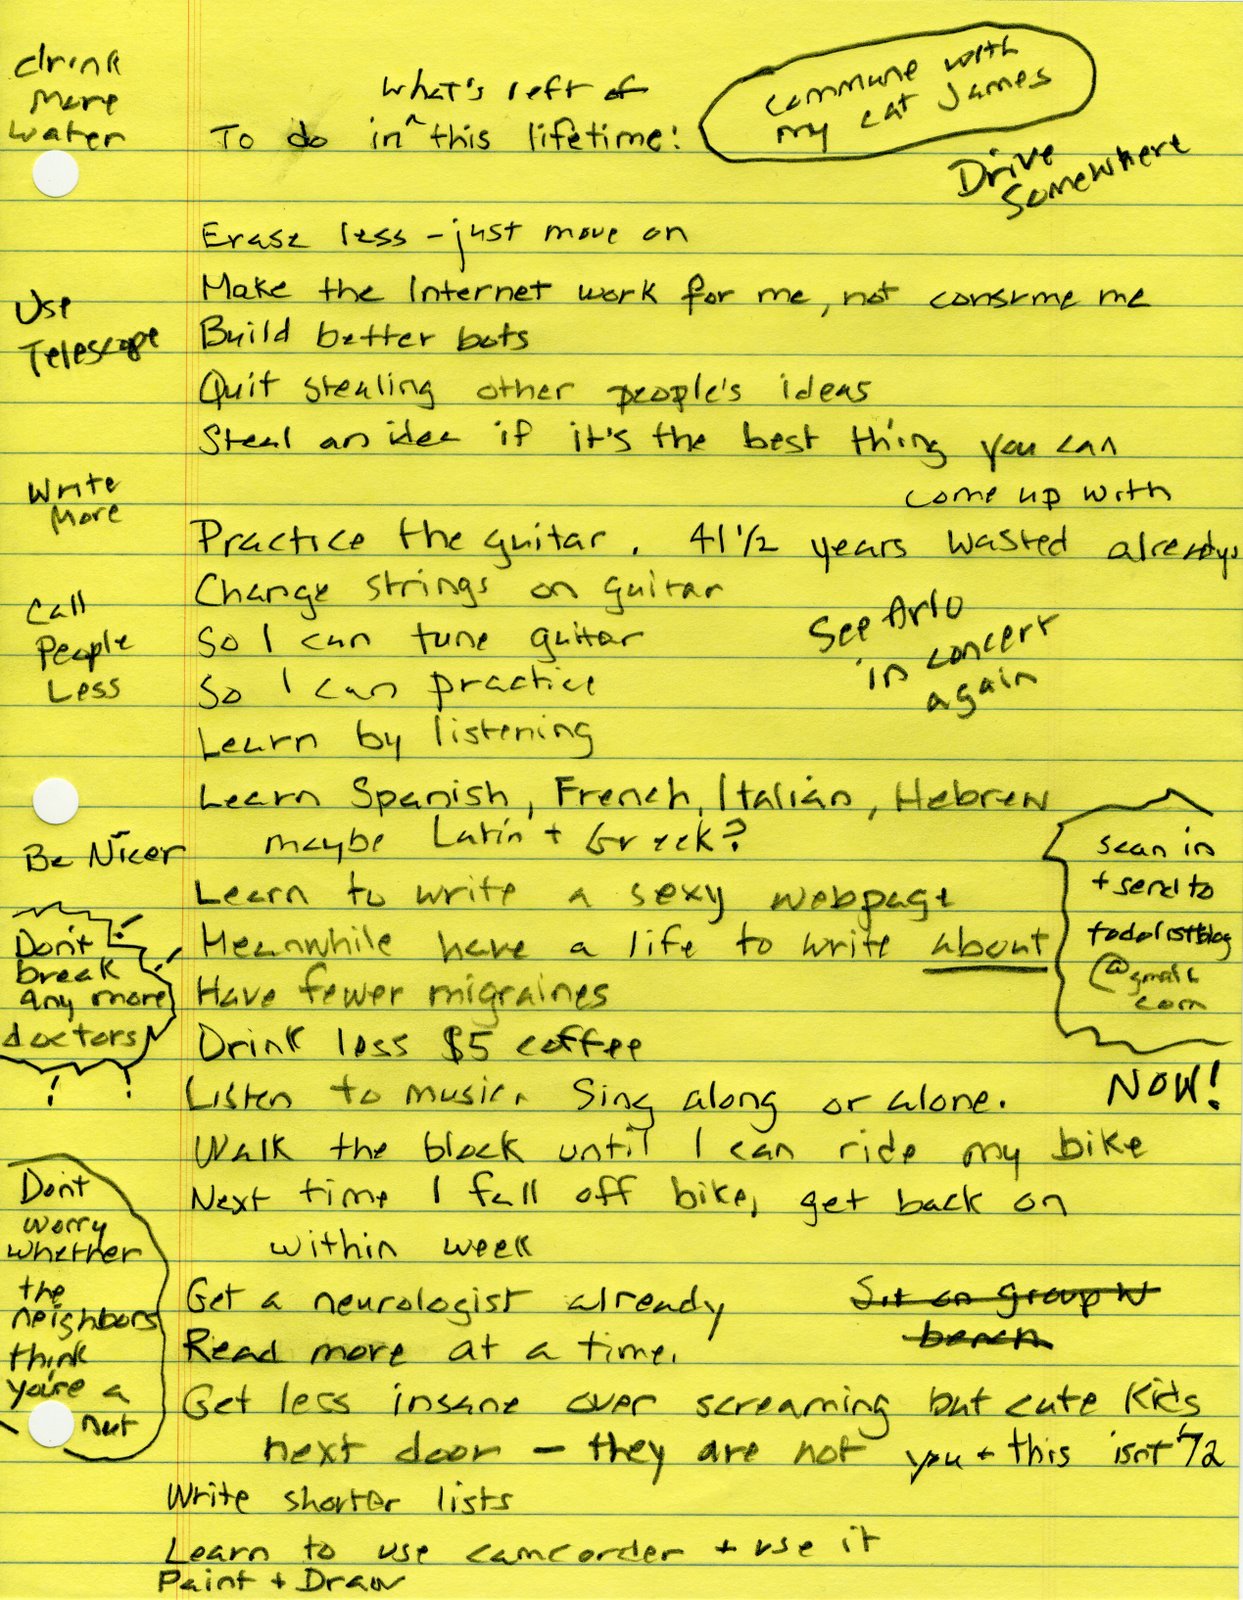 drink
More
water
what's left of
To do in ^ this lifetime:
commune with
my cat James
Drive
Somewhere
Erase less - just move on
Make the Internet work for me, not consume me
Use
Telescope
Build better bots
Quit stealing other people's ideas
Steal an idea if it's the best thing you can
come up with
Write
More
Practice the guitar. 41 1/2 years wasted already.
Change strings on guitar
So I can tune guitar
So I can practice
Call
People
Less
See Arlo
in concert
again
Learn by listening
Learn Spanish, French, Italian, Hebrew
maybe Latin + Greek?
Be Nicer
scan in
+ send to
todolistblog
@gmail
com
NOW!
Learn to write a sexy webpage
Meanwhile have a life to write about
Don't
break
any more
doctors
! !
Have fewer migraines
Drink less $5 coffee
Listen to music. Sing along or alone.
Walk the block until I can ride my bike
Next time I fall off bike, get back on
within week
Dont
worry
whether
the
neighbors
think
you're a
nut
Get a neurologist already
Sit on group W
bench
Read more at a time.
Get less insane over screaming but cute kids
next door - they are not you + this isnt '72
Write shorter lists
Learn to use camcorder + use it
Paint + Draw